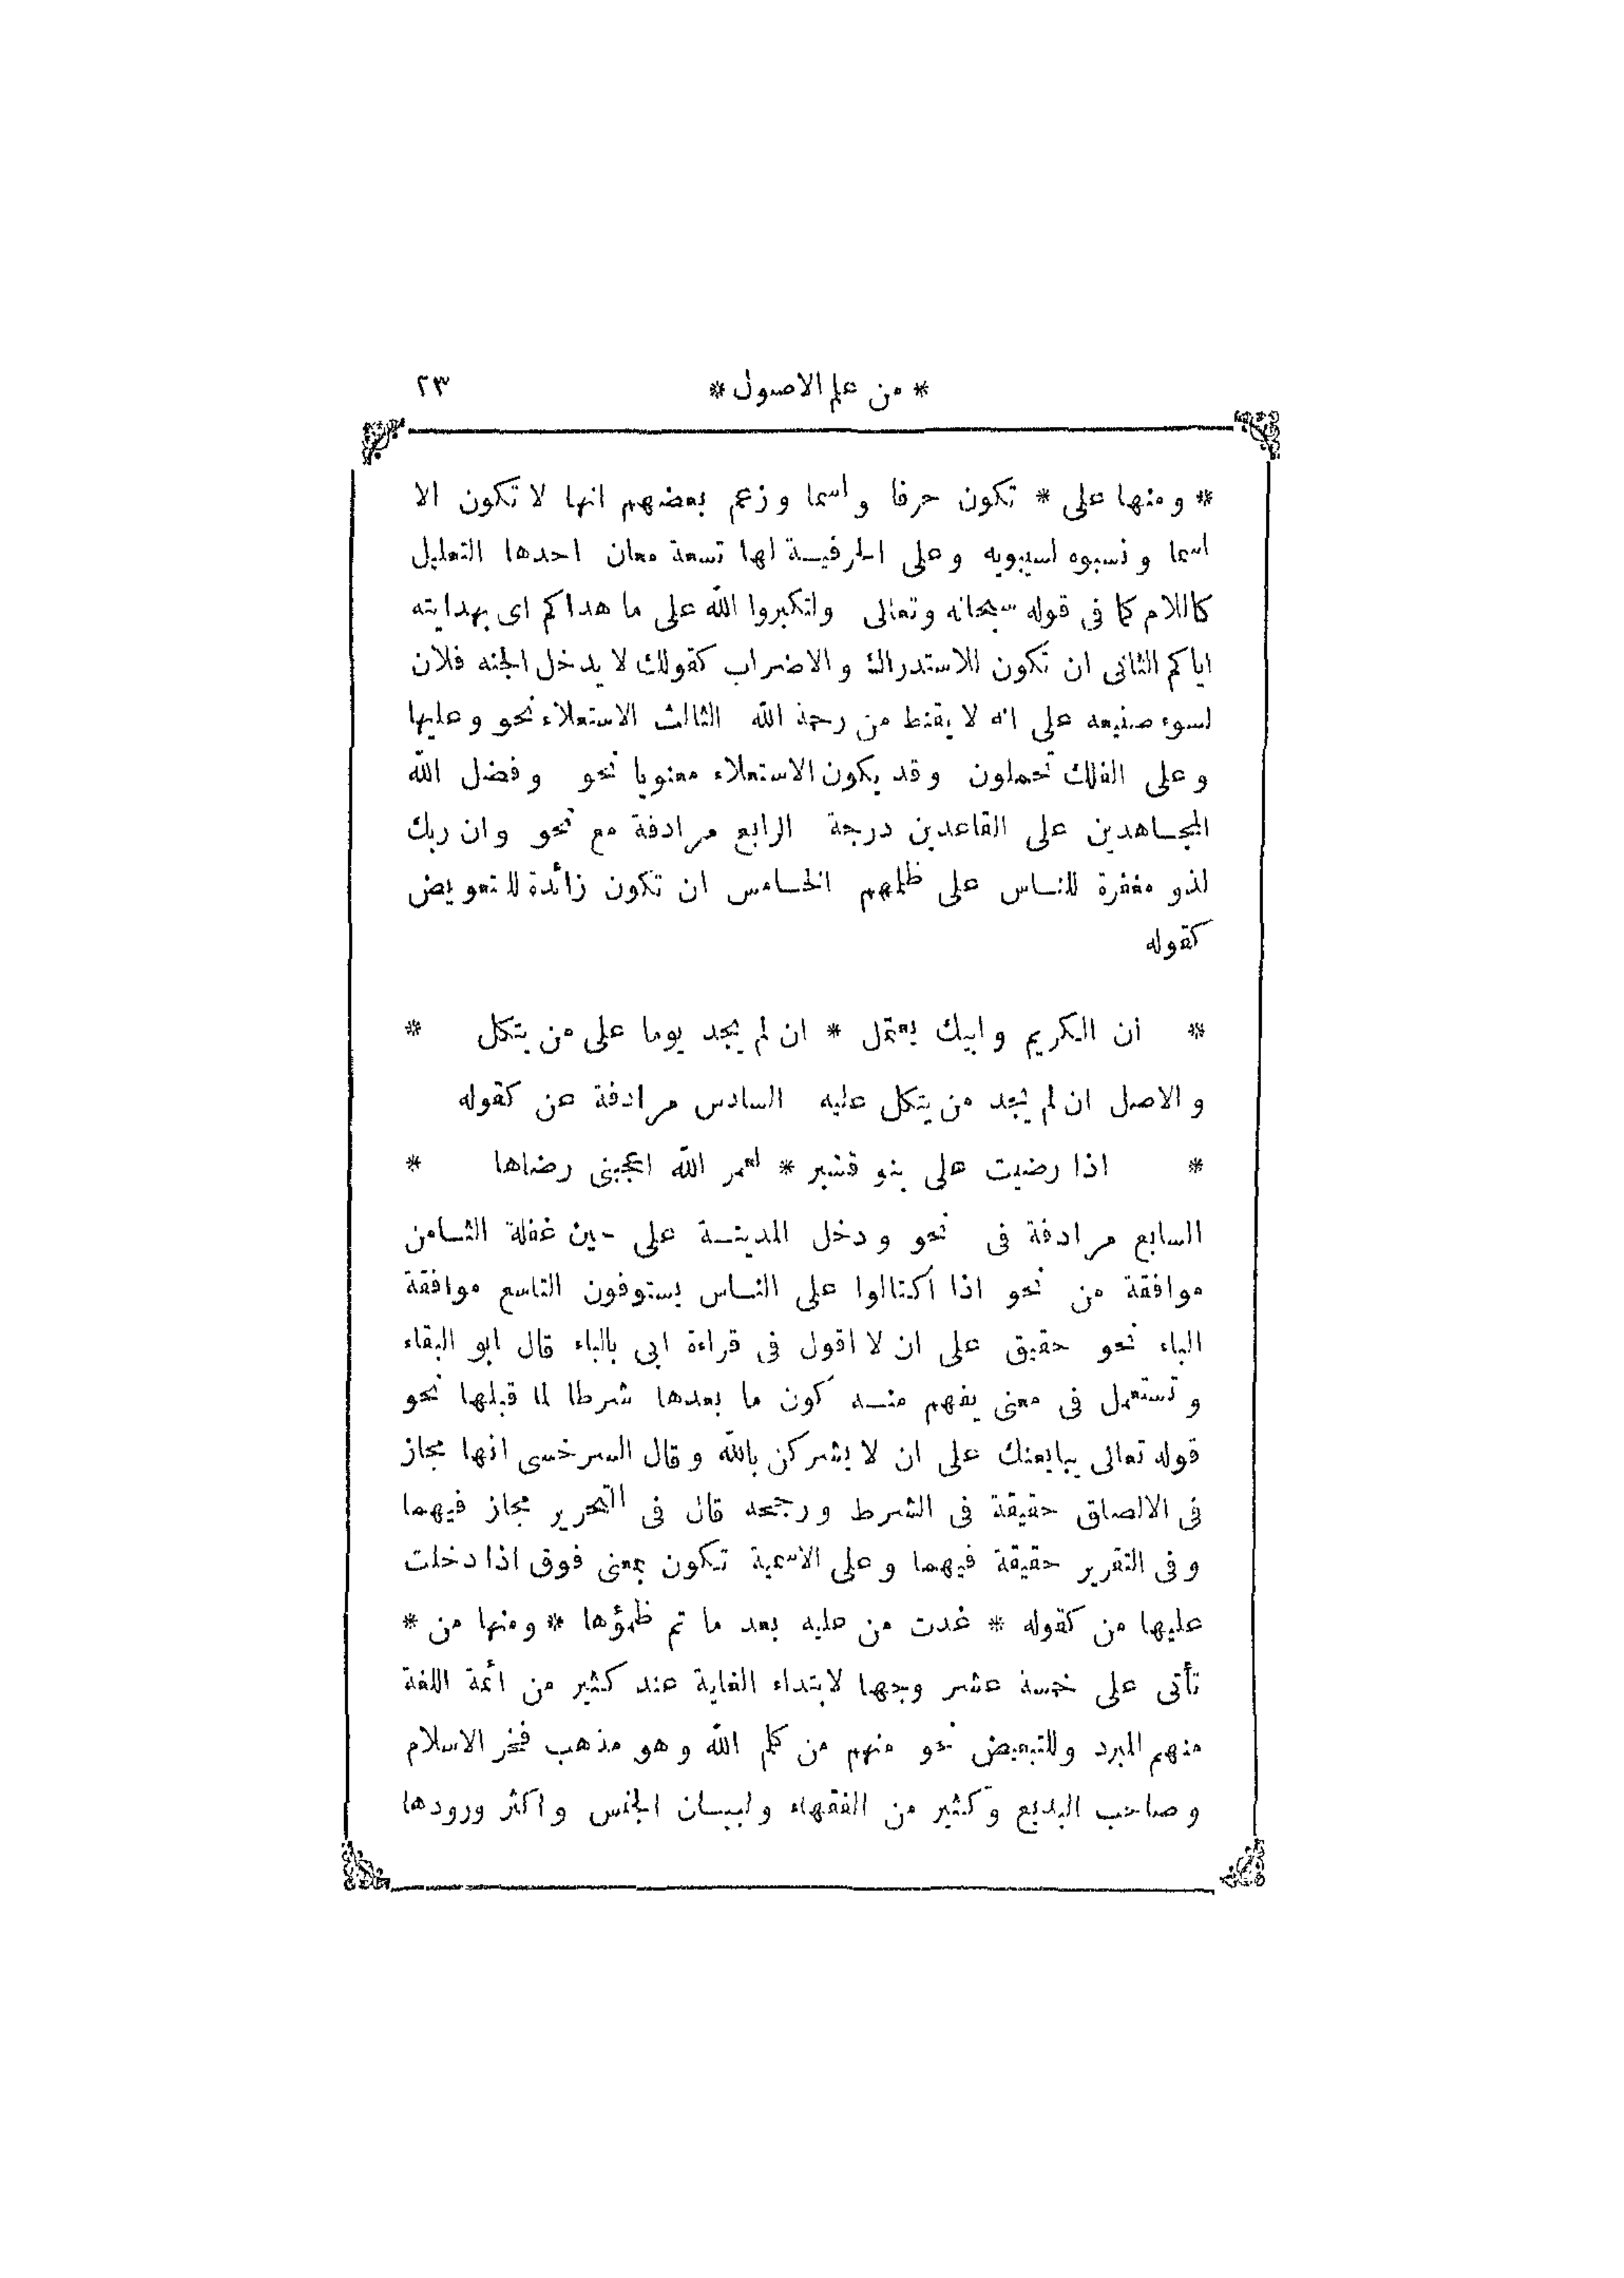 * من علم الاصول *
٢٣
* ومنها على * تكون حرفا واسما وزعم بعضهم انها لا تكون الا
اسما ونسبوه لسيبويه وعلى الحرفيـة لها تسعة معان احدها التعليل
كاللام كما فى قوله سبحانه وتعالى ولتكبروا الله على ما هداكم اى بهدايته
اياكم الثانى ان تكون للاستدراك والاضراب كقولك لا يدخل الجنه فلان
لسوء صنيعه على انه لا يقنط من رحمة الله الثالث الاستعلاء نحو وعليها
وعلى الفلك تحملون وقد يكون الاستعلاء معنويا نحو وفضل الله
المجـاهدين على القاعدين درجة الرابع مرادفة مع نحو وان ربك
لذو مغفرة للنـاس على ظلمهم الخـامس ان تكون زائدة للتعويض
كقوله
* ان الكريم وابيك يعتمل * ان لم يجد يوما على من يتكل *
والاصل ان لم يجد من يتكل عليه السادس مرادفة عن كقوله
* اذا رضيت على بنو قشير * لعمر الله اعجبنى رضاها *
السابع مرادفة فى نحو ودخل المدينـة على حين غفلة الثـامن
موافقة من نحو اذا اكتالوا على النـاس يستوفون التاسع موافقة
الباء نحو حقيق على ان لا اقول فى قراءة ابى بالباء قال ابو البقاء
وتستعمل فى معنى يفهم منـه كون ما بعدها شرطا لما قبلها نحو
قوله تعالى يبايعنك على ان لا يشركن بالله وقال السرخسى انها مجاز
فى الالصاق حقيقة فى الشرط ورجحه قال فى التحرير مجاز فيهما
وفى التقرير حقيقة فيهما وعلى الاسمية تكون بمعنى فوق اذا دخلت
عليها من كقوله * غدت من عليه بعد ما تم ظمؤها * ومنها من *
تأتى على خمسة عشر وجها لابتداء الغاية عند كثير من أئمة اللغة
منهم المبرد وللتبعيض نحو منهم من كلم الله وهو مذهب فخر الاسلام
وصاحب البديع وكثير من الفقهاء ولبيـان الجنس واكثر ورودها